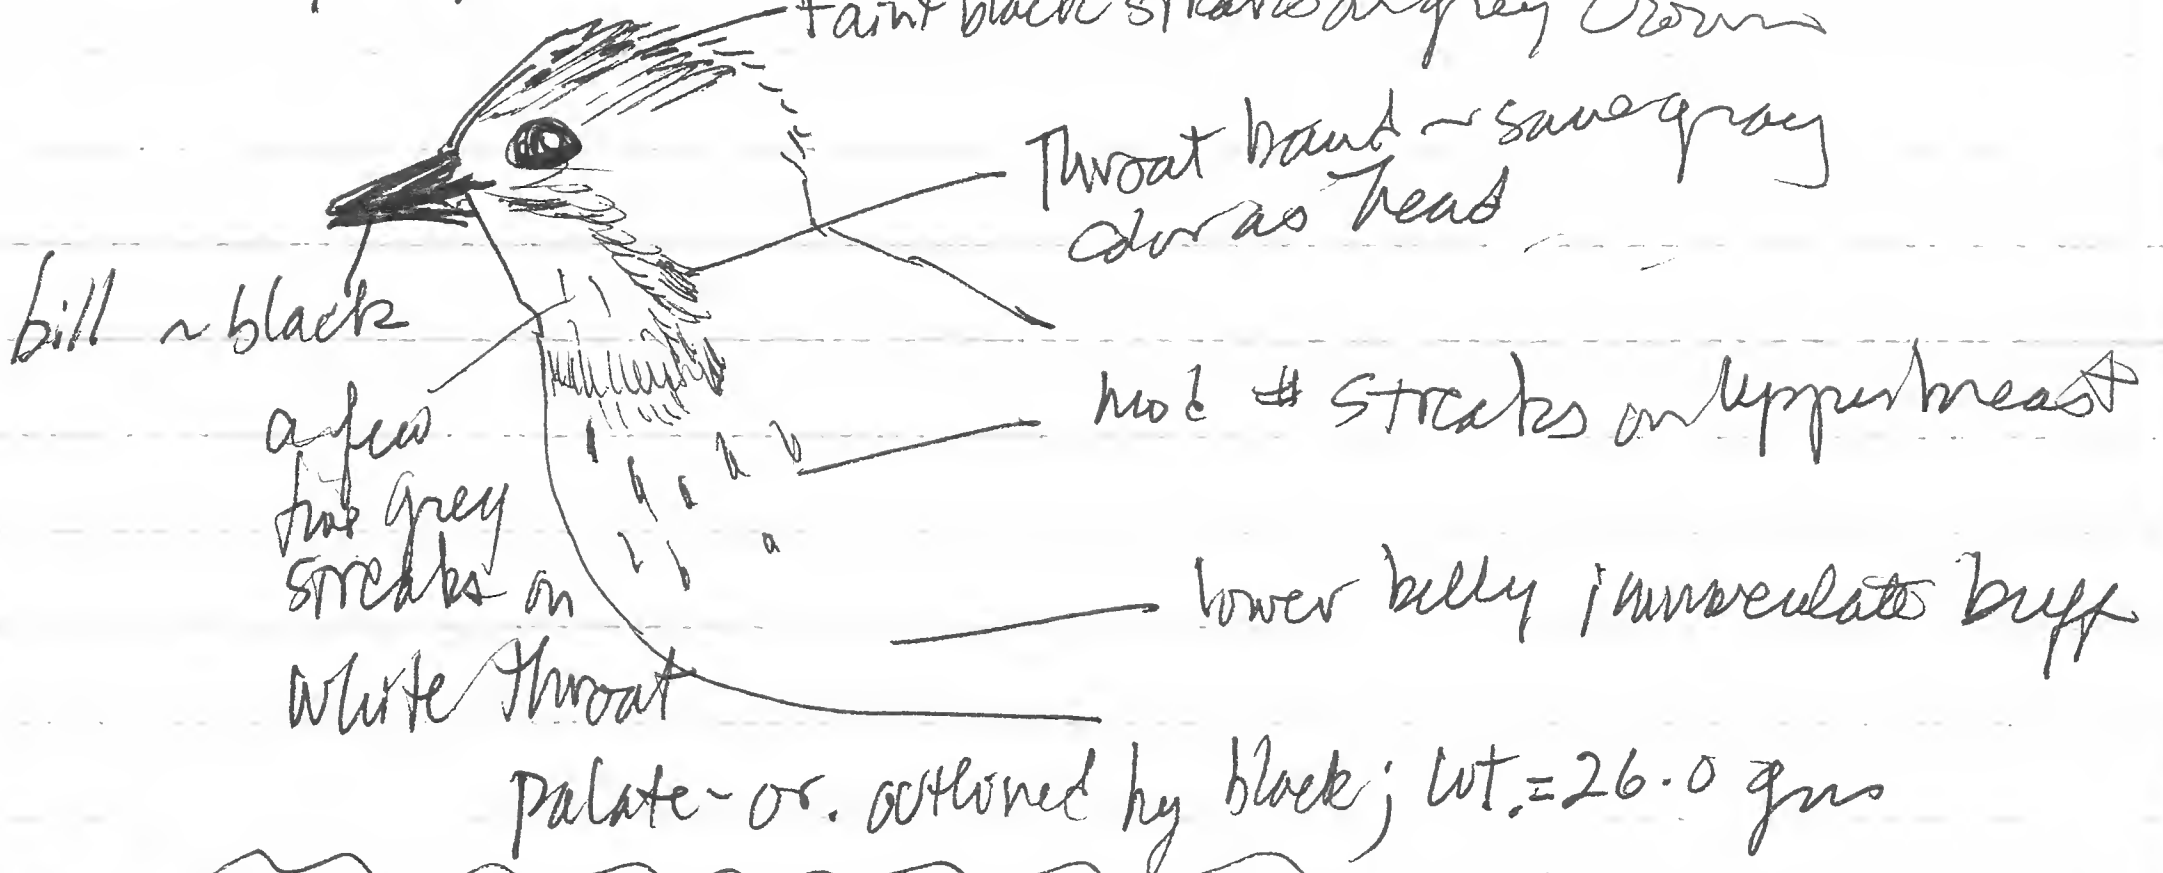 faint black streaks on grey crown
Throat band ~ same gray
color as head
bill ~ black
a few
fine grey
streaks on
white throat
mod # streaks on upper breast
lower belly immaculate buff
palate - or. outlined by black; wt. = 26.0 gms